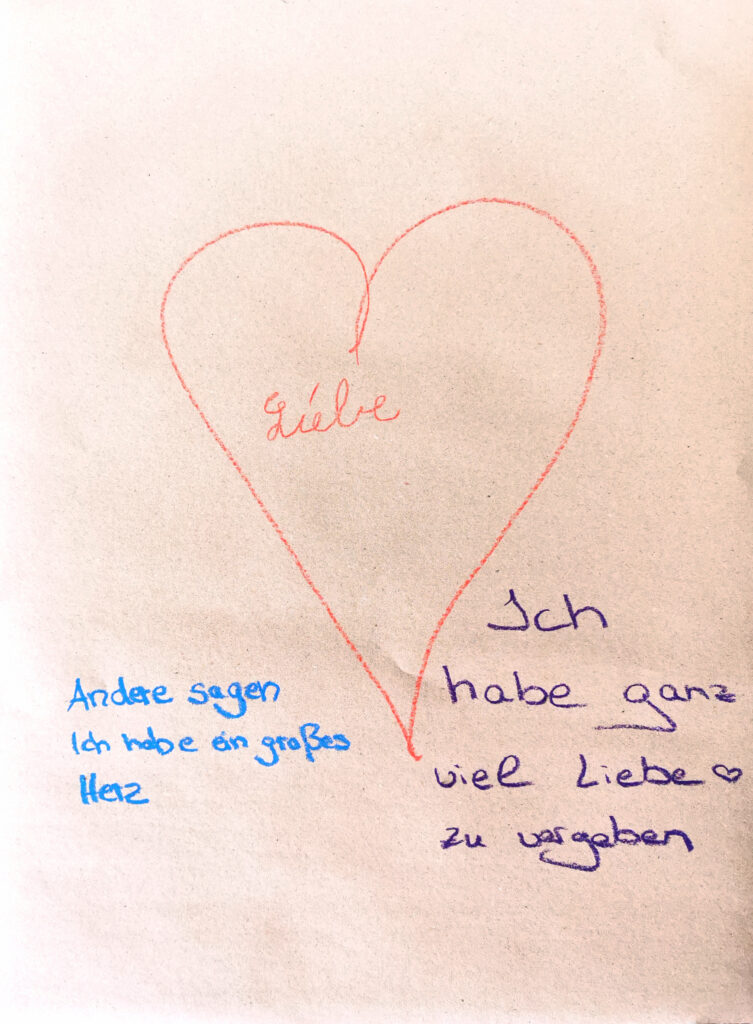 Liebe
Andere sagen
Ich habe ein großes
Herz
Ich
habe ganz
viel Liebe ♡
zu vergeben